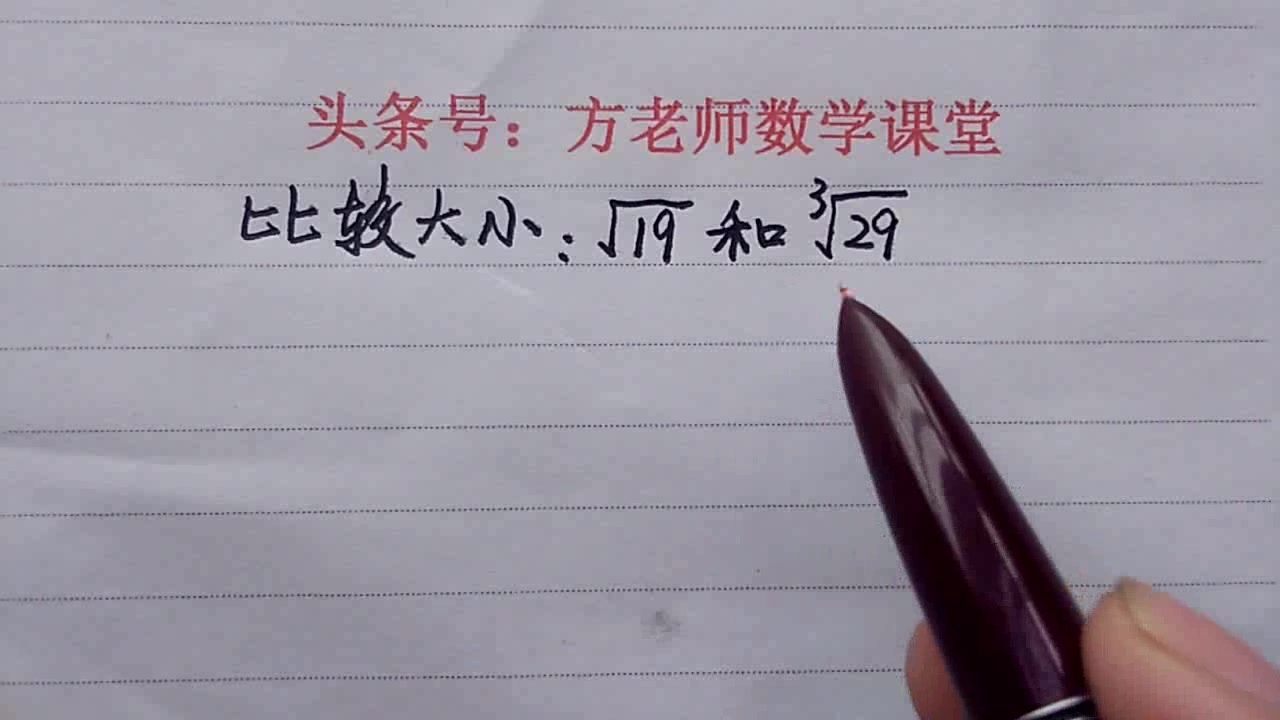 头条号：方老师数学课堂
比较大小：√19 和 ³√29